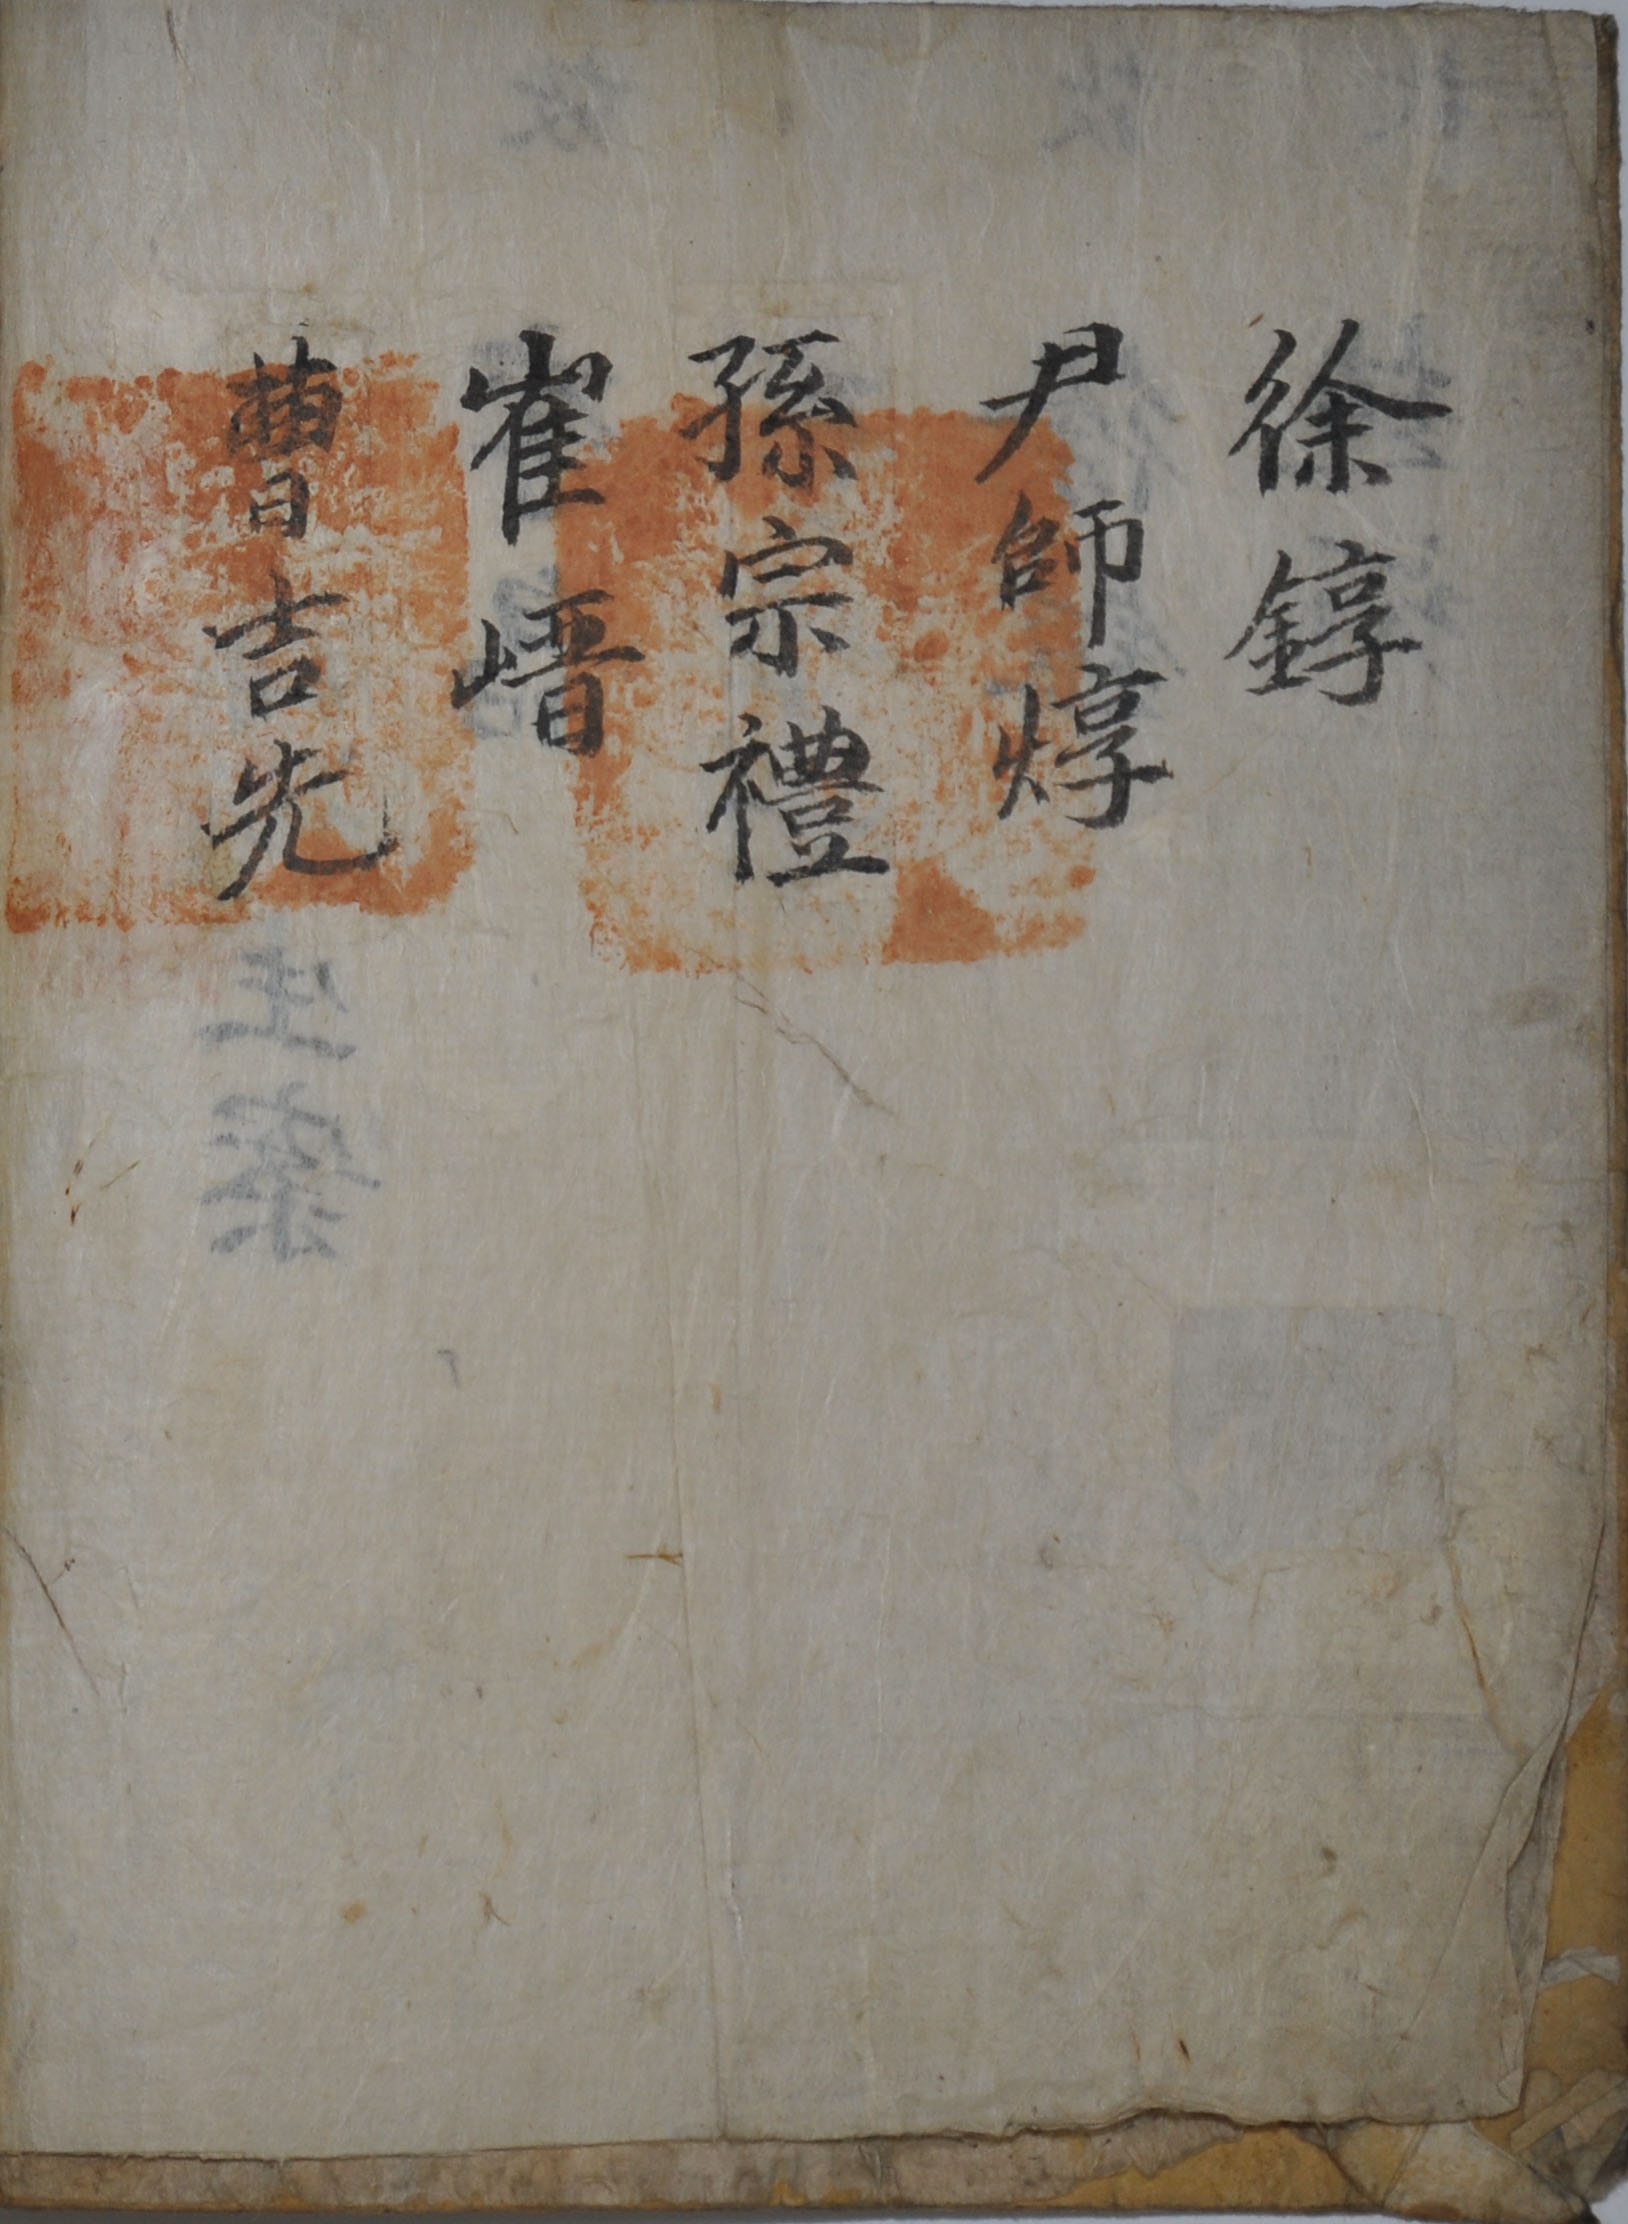 徐錞
尹師焞
孫宗禮
崔㬜
曺吉先